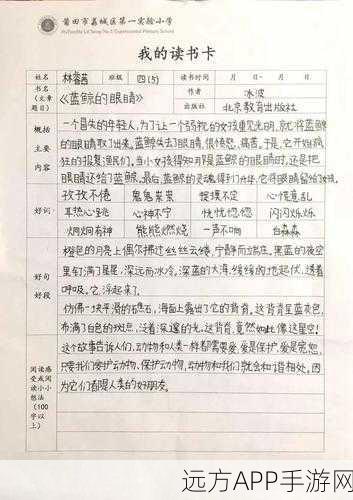 莆田市荔城区第一实验小学
我的读书卡
姓名 林蓉茜 班级 四(5) 读书时间 月 日- 月 日
书名(文章题目) 《蓝鲸的眼睛》 作者 冰波
出版社 北京教育出版社
概括主要内容
一个冒失的年轻人,为了让一个弱视的女孩重见光明,就将蓝鲸
的眼睛取了出来。蓝鲸失去了眼睛,很愤怒,痛苦。于是,它开始疯
狂的报复渔民们。当小女孩得知那是蓝鲸的眼睛时,还是把
眼睛还给了蓝鲸。最后,蓝鲸的灵魂得到了升华,它将眼睛留给了女孩。
好词
孜孜不倦 鬼鬼祟祟 惶惶不定 心慌意乱
耳热心跳 心神不宁 恍恍惚惚 闪闪烁烁
炯炯有神 能能燃烧 一声不响 白森森
好句好段
橙色的月亮上偶尔拂过丝丝云缕,宁静而端庄。黑蓝的夜空
里钉满了星星,深远而冰冷。深蓝的大海,缓缓的起起伏,透着
呼吸。它,浮起来了。
仿佛一块平滑的礁石,海面上露出了它的背脊。这背脊呈蓝灰色,
布满了白色的斑点,泛着深邃的光。这背脊,竟然如此像这星空!
阅读感受或阅读小小想法(100字以上)
这个故事告诉人们,动物和人类一样都需要爱。爱是保护,爱是宽恕。
只要我们爱护动物、保护动物,动物和我们就会和谐相处,因
为它们都是人类的好朋友。
远方APP手游网